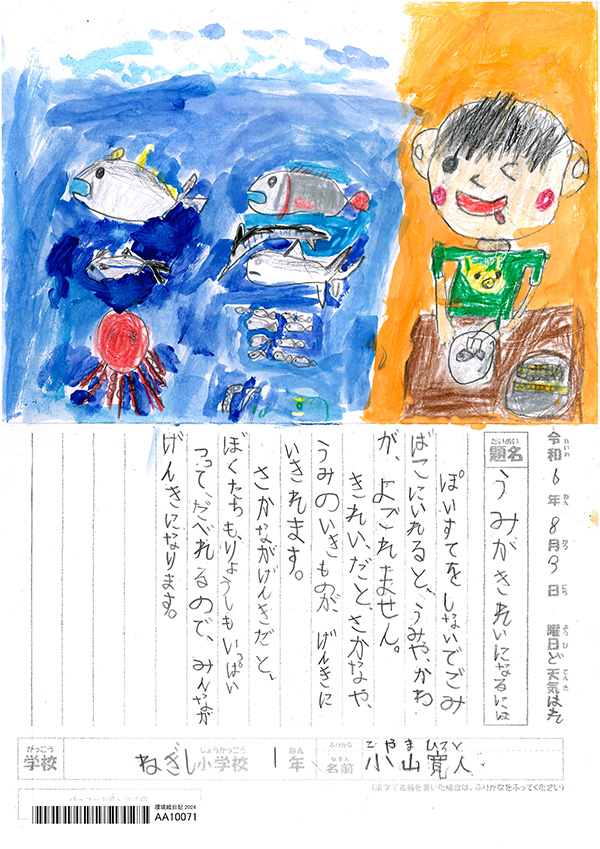 令和6年8月3日 曜日ど 天気はれ
題名 うみがきれいになるには
ぽいすてをしないでごみ
ばこにいれると、うみや、かわ
が、よごれません。
きれい、だと、さかなや、
うみのいきものが、げんきに
いきれます。
さかながげんきだと、
ぼくたちも、りょうしもいっぱい
つって、たべれるので、みんなが
げんきになります。
ふりがな こやま ひろと
学校 ねぎし小学校 1年 名前 小山寛人
(漢字で名前を書いた場合は、ふりがなをふってください)
環境絵日記 2024
AA10071